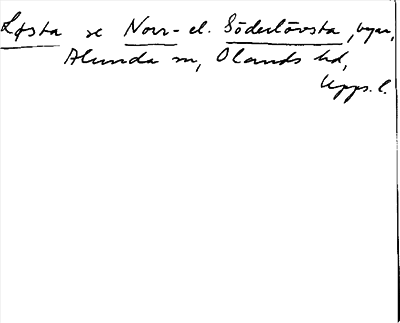 Løsta se Norr- el. Söderlövsta, byar,
Alunda sn, Olands hd,
Upps. l.